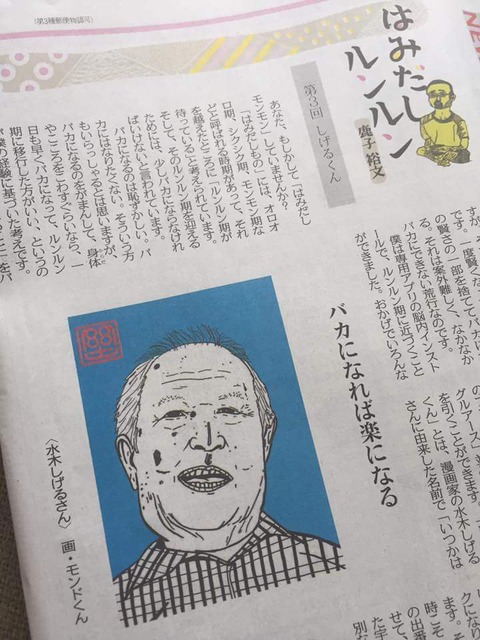 (第3種郵便物認可)
はみだし
ルンルン
鹿子 裕文
第3回 しげるくん
あなた、もしかして「はみだし
モンモン」していませんか?
「はみだしもの」には、オロオ
ロ期、シクシク期、モンモン期な
どと呼ばれる時期があって、それ
を越えたところに「ルンルン期が
待っている」と考えられています。
そして、そのルンルン期を迎える
ためには、少しバカにならなけれ
ばいけないと言われています。
バカになるのは恥ずかしい。バ
カにはなりたくない。そういう方
もいらっしゃるとは思いますが、
バカになるのをがまんして、身体
やこころをこわすぐらいなら、一
日も早くバカになって、ルンルン
期に移行した方がいい、というの
です。一度賢くな
の賢さの一部を捨てて、バカに
る。それは案外難しく、なかなか
バカにできない荒行なのです。
僕は専用アプリの脳内インスト
ールで、ルンルン期に近づくこと
ができました。おかげでいろんな
バカになれば楽になる
グルアース」
を引くことができます。
くん」とは、漫画家の水木しげる
さんに由来した名前で「いつかは
〈水木しげるさん〉 画・モンドくん